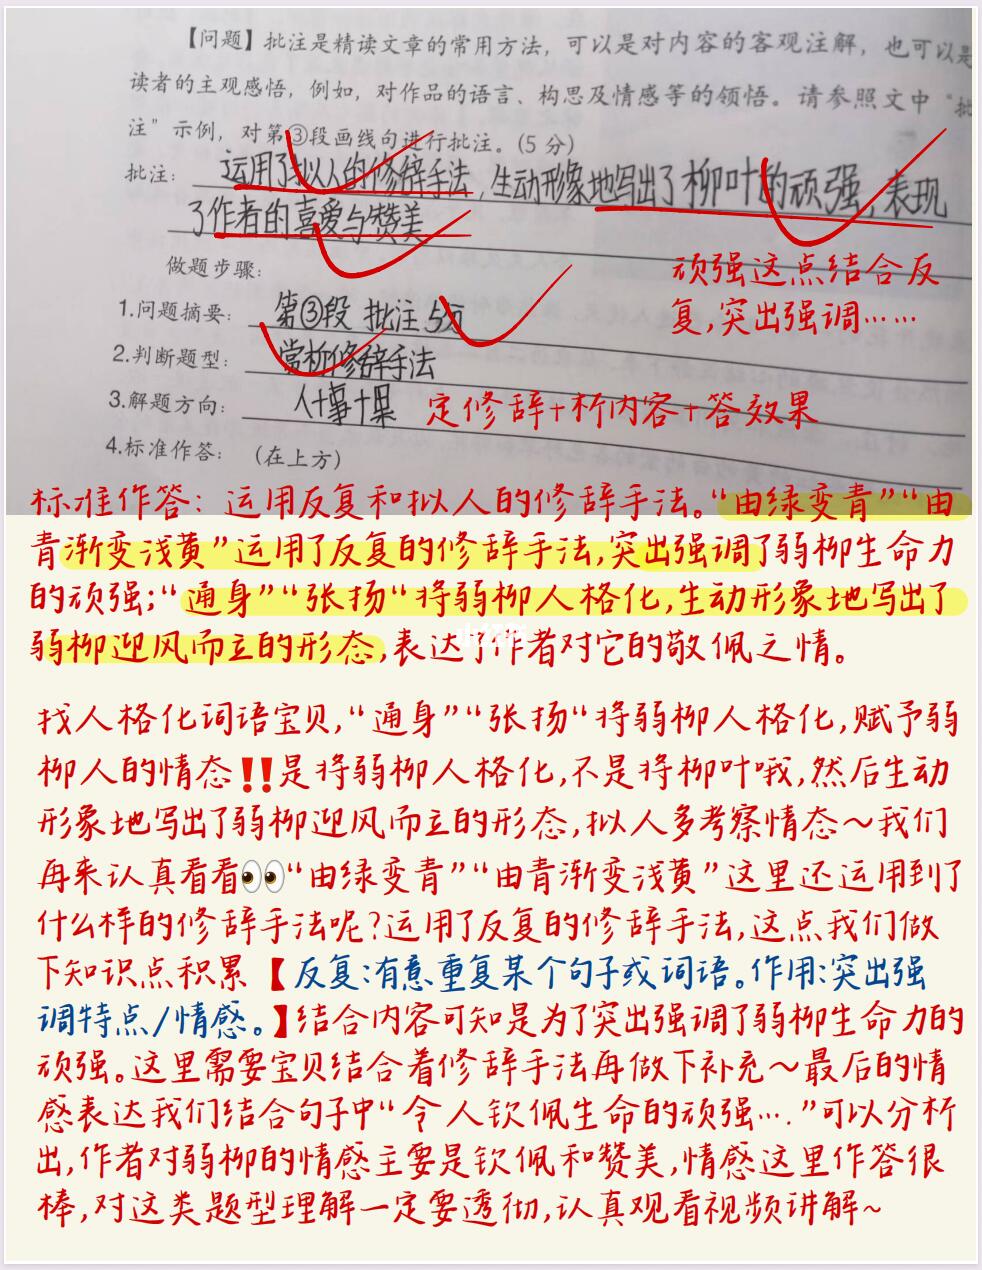 【问题】批注是精读文章的常用方法，可以是对内容的客观注解，也可以是
读者的主观感悟，例如，对作品的语言、构思及情感等的领悟。请参照文中“批
注”示例，对第③段画线句进行批注。(5 分)
批注：运用了拟人的修辞手法，生动形象地写出了柳叶的顽强，表现
了作者的喜爱与赞美
做题步骤：
顽强这点结合反
复,突出强调……
1.问题摘要：第③段 批注 5分
2.判断题型：赏析修辞手法
3.解题方向：人+事+果
定修辞+析内容+答效果
4.标准作答：(在上方)
标准作答：运用反复和拟人的修辞手法。“由绿变青”“由
青渐变浅黄”运用了反复的修辞手法,突出强调了弱柳生命力
的顽强;“通身”“张扬“将弱柳人格化,生动形象地写出了
弱柳迎风而立的形态,表达了作者对它的敬佩之情。
找人格化词语宝贝,“通身”“张扬“将弱柳人格化,赋予弱
柳人的情态‼️是将弱柳人格化,不是将柳叶哦,然后生动
形象地写出了弱柳迎风而立的形态,拟人多考察情态～我们
再来认真看看👀“由绿变青”“由青渐变浅黄”这里还运用到了
什么样的修辞手法呢?运用了反复的修辞手法,这点我们做
下知识点积累【反复:有意重复某个句子或词语。作用:突出强
调特点/情感。】结合内容可知是为了突出强调了弱柳生命力的
顽强。这里需要宝贝结合着修辞手法再做下补充～最后的情
感表达我们结合句子中“令人钦佩生命的顽强…”可以分析
出,作者对弱柳的情感主要是钦佩和赞美,情感这里作答很
棒,对这类题型理解一定要透彻,认真观看视频讲解~